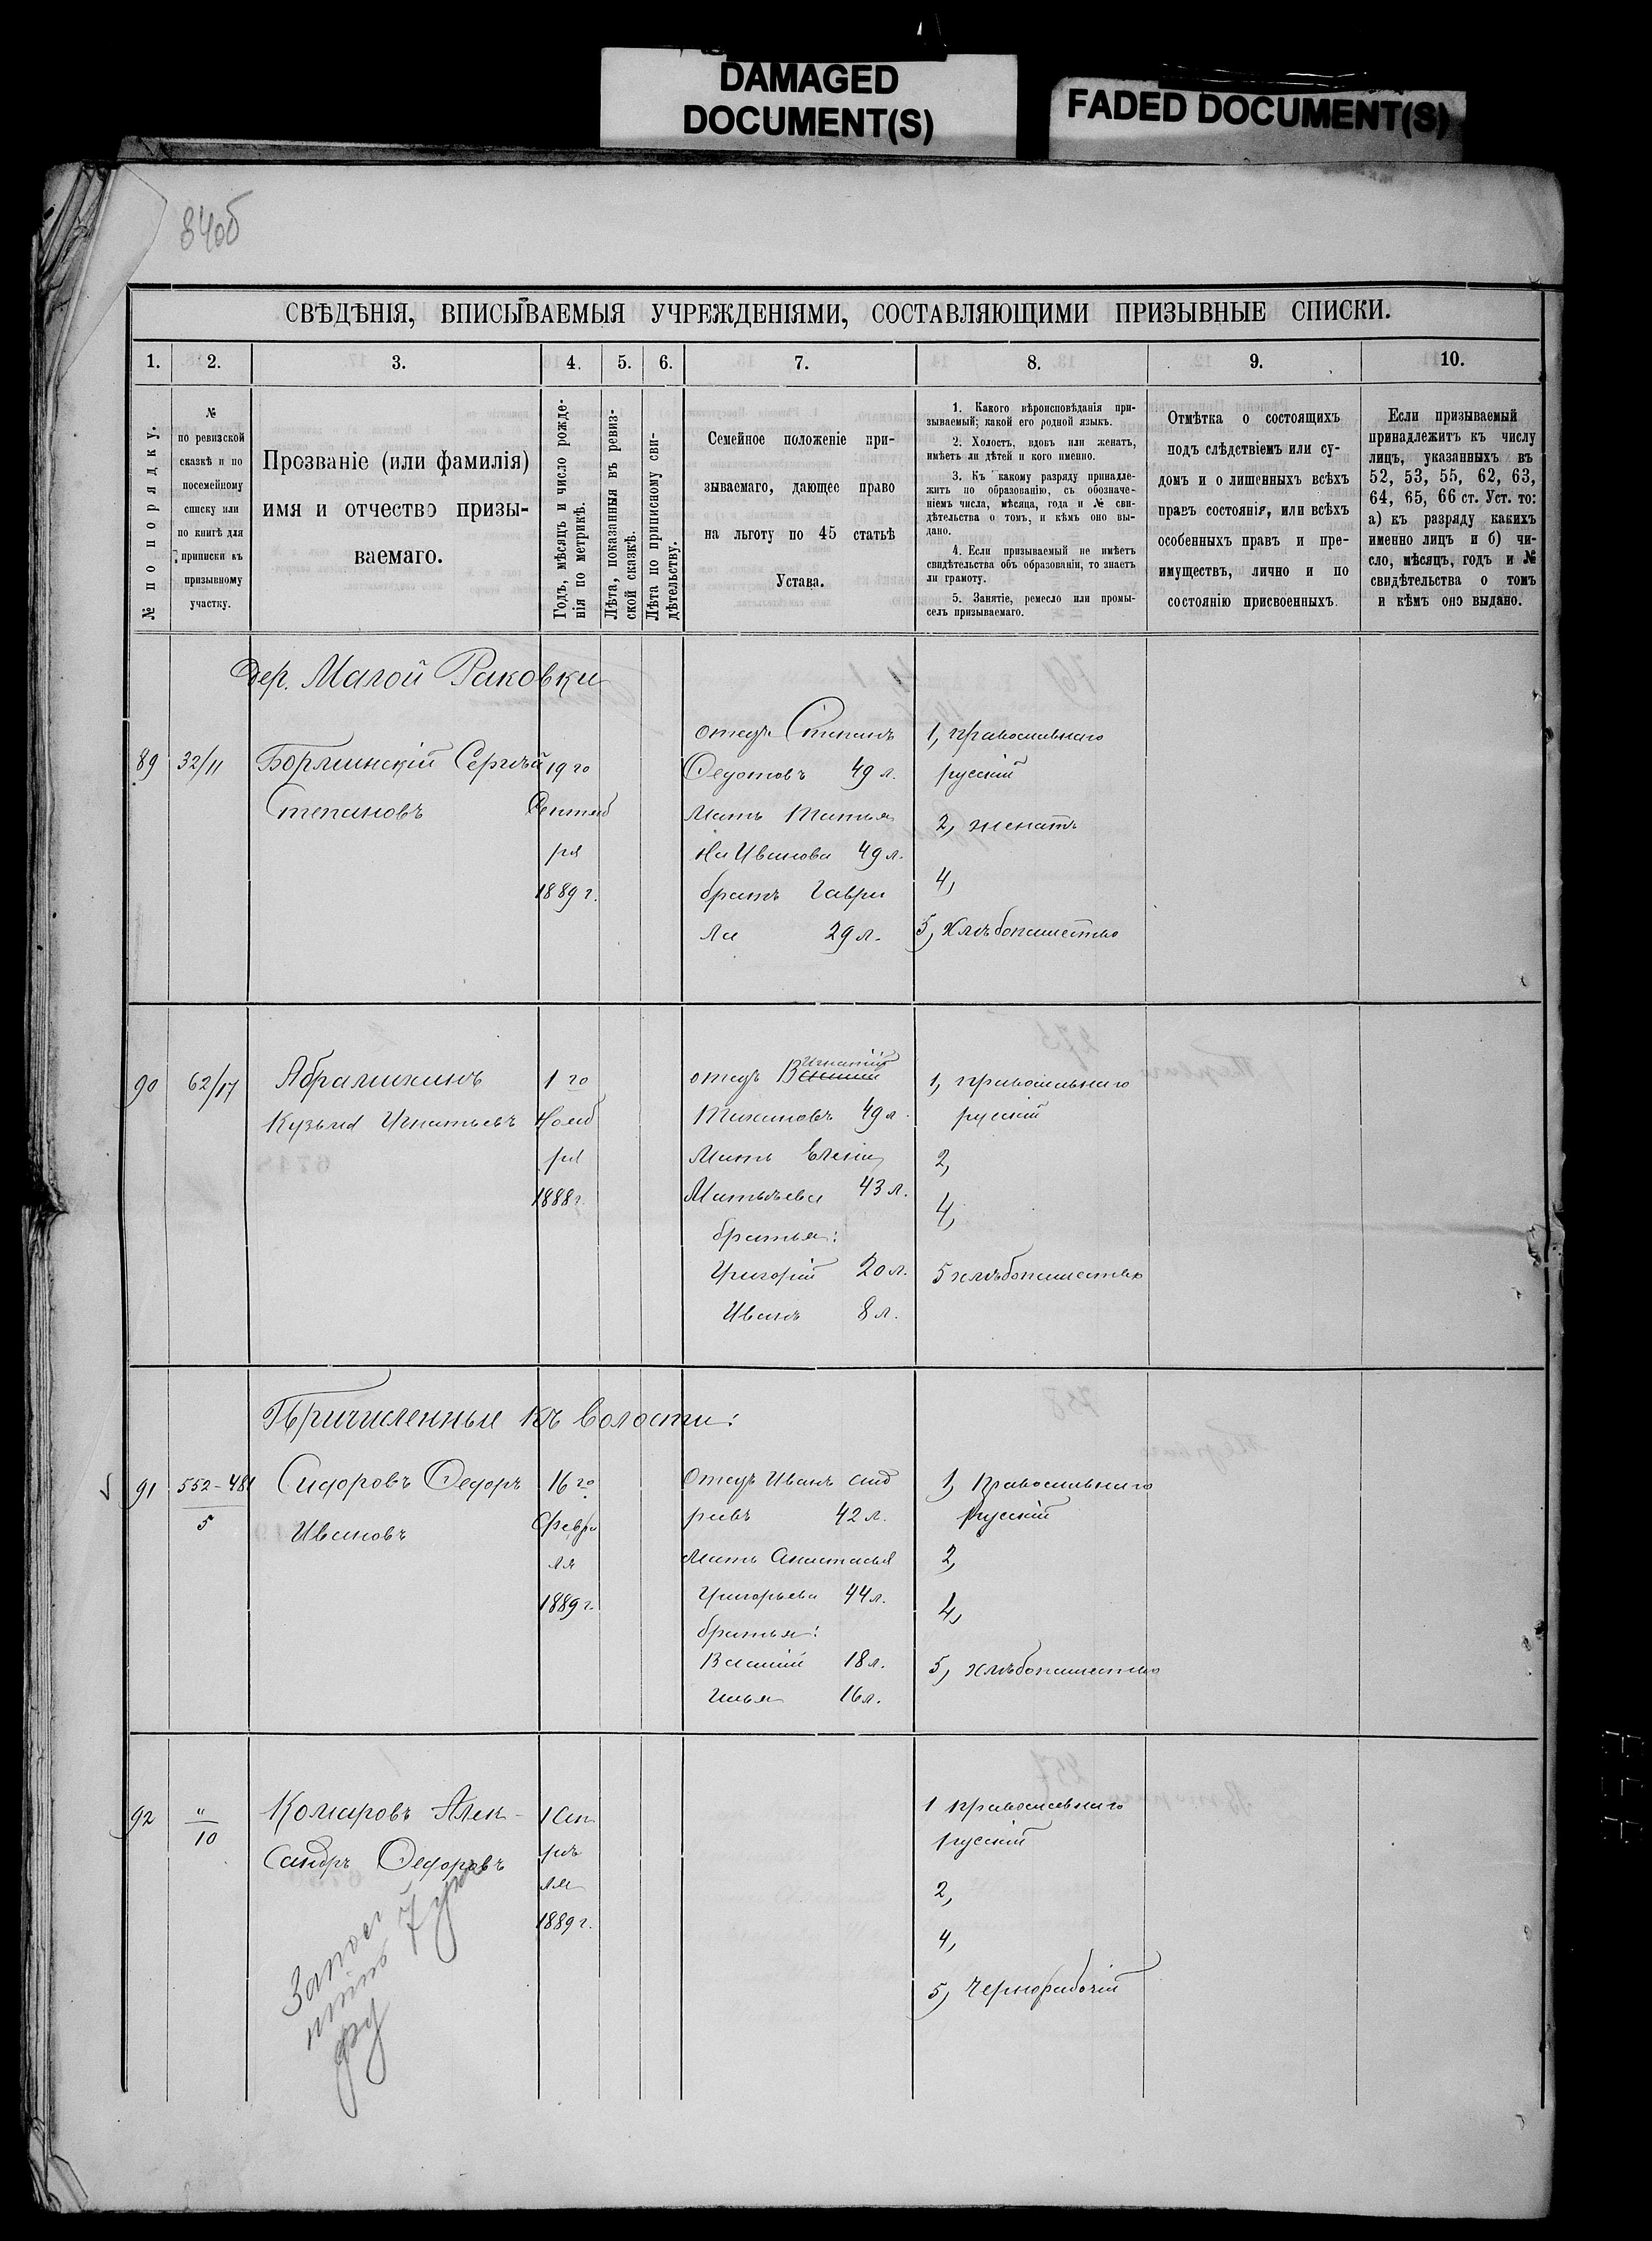 DAMAGED
DOCUMENT(S)
FADED DOCUMENT(S)
84об
СВѢДѢНІЯ, ВПИСЫВАЕМЫЯ УЧРЕЖДЕНІЯМИ, СОСТАВЛЯЮЩИМИ ПРИЗЫВНЫЕ СПИСКИ.
1. 2. 3. 4. 5. 6. 7. 8. 9. 10.
№ по порядку.
№
по ревизской
сказкѣ и по
посемейному
списку или
по книгѣ для
приписки къ
призывному
участку.
Прозваніе (или фамилія)
имя и отчество призы-
ваемаго.
Годъ, мѣсяцъ и число рожде-
нія по метрикѣ.
Лѣта, показанныя въ ревиз-
ской сказкѣ.
Лѣта по приписному сви-
дѣтельству.
Семейное положеніе при-
зываемаго, дающее право
на льготу по 45 статьѣ
Устава.
1. Какого вѣроисповѣданія при-
зываемый; какой его родной языкъ.
2. Холостъ, вдовъ или женатъ,
имѣетъ ли дѣтей и кого именно.
3. Къ какому разряду принадле-
житъ по образованію, съ обозначе-
ніемъ числа, мѣсяца, года и № сви-
дѣтельства о томъ, и кѣмъ оно вы-
дано.
4. Если призываемый не имѣетъ
свидѣтельства объ образованіи, то знаетъ
ли грамоту.
5. Занятіе, ремесло или промы-
селъ призываемаго.
Отмѣтка о состоящихъ
подъ слѣдствіемъ или су-
домъ и о лишенныхъ всѣхъ
правъ состоянія, или всѣхъ
особенныхъ правъ и пре-
имуществъ, лично и по
состоянію присвоенныхъ.
Если призываемый
принадлежитъ къ числу
лицъ, указанныхъ въ
52, 53, 55, 62, 63,
64, 65, 66 ст. Уст. то:
а) къ разряду какихъ
именно лицъ и б) чи-
сло, мѣсяцъ, годъ и №
свидѣтельства о томъ
и кѣмъ оно выдано.
Дер. Малой Раковки
89 32/11
Борминскій Сергѣй
Степановъ
19 го
Сентяб
ря
1889 г.
отецъ Степанъ
Федотовъ 49 л.
Мать Татья
на Иванова 49 л.
братъ Гаври
ла 29 л.
1, православнаго
русскій
2, женатъ
4,
5, хлѣбопашество
90 62/17
Абрамкинъ
Кузьма Игнатьевъ
1 го
Нояб
ря
1888 г.
Игнатій
отецъ Василій
Тихановъ 49 л.
Мать Елена
Матвѣева 43 л.
братья:
Григорій 20 л.
Иванъ 8 л.
1, православнаго
русскій
2,
4,
5 хлѣбопашество
Причисленные къ волости:
91 552-481
5
Сидоровъ Федоръ
Ивановъ
16 го
Февра
ля
1889 г.
Отецъ Иванъ Анд
реевъ 42 л.
Мать Анастасья
Григорьева 44 л.
братья:
Василій 18 л.
Илья 16 л.
1, Православнаго
Русскій
2,
4,
5, хлѣбопашество
92 "
10
Комаровъ Алек-
сандръ Федоровъ
1 Ап
рѣ
ля
1889 г.
1 православнаго
русскій
2,
4,
5, Чернорабочій